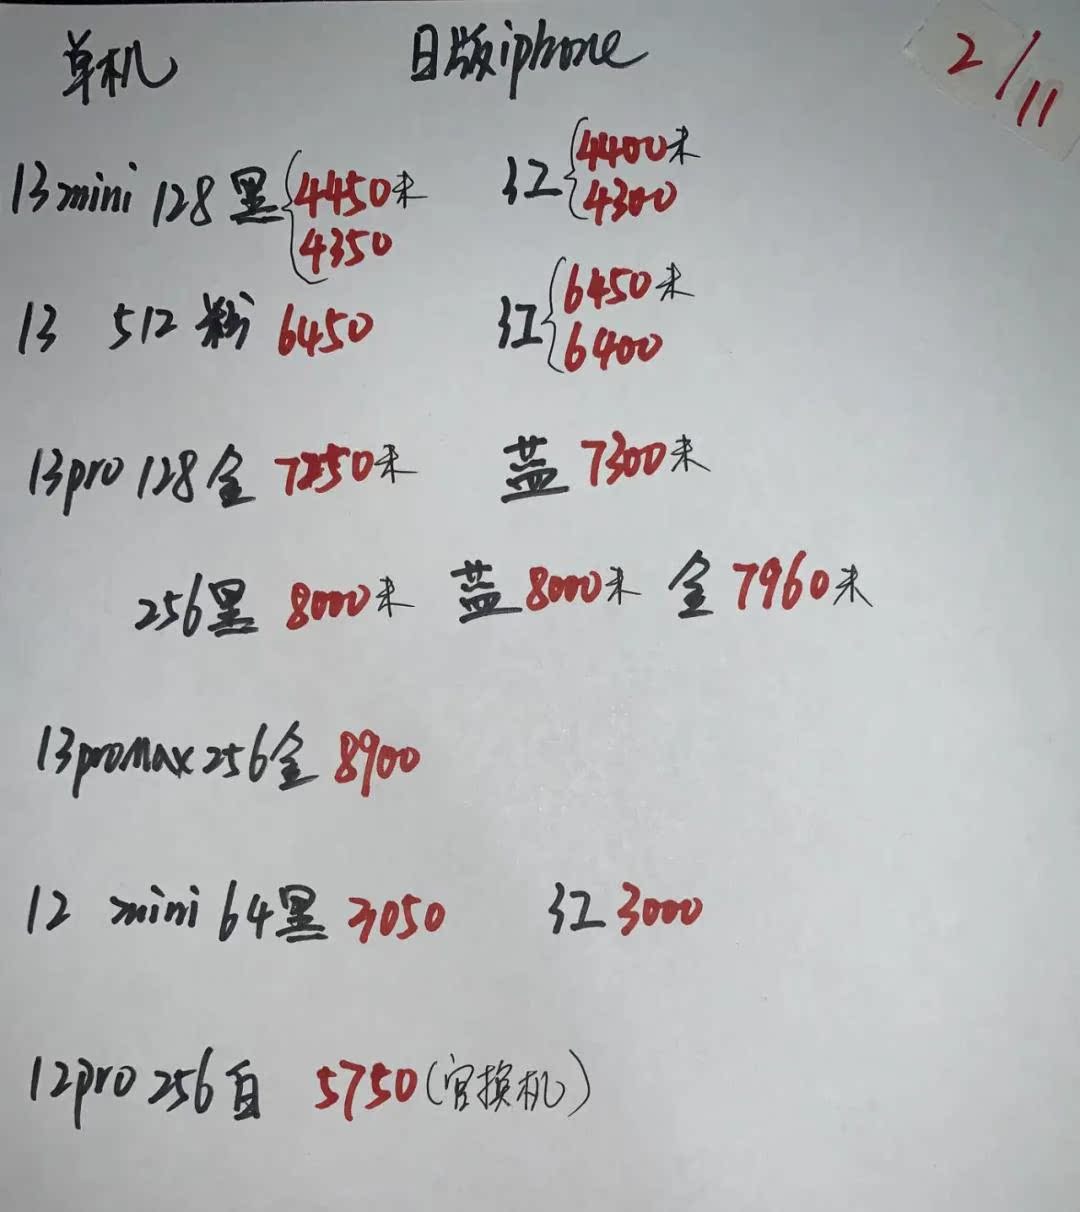 单机 日版iphone 2/11
13mini 128黑 4450未 红 4400未
4350 4300
13 512粉 6450 红 6450未
6400
13pro 128金 7250未 蓝 7300未
256黑 8000未 蓝 8000未 金 7960未
13proMax 256金 8900
12 mini 64黑 3050 红 3000
12pro 256白 5750(官换机)